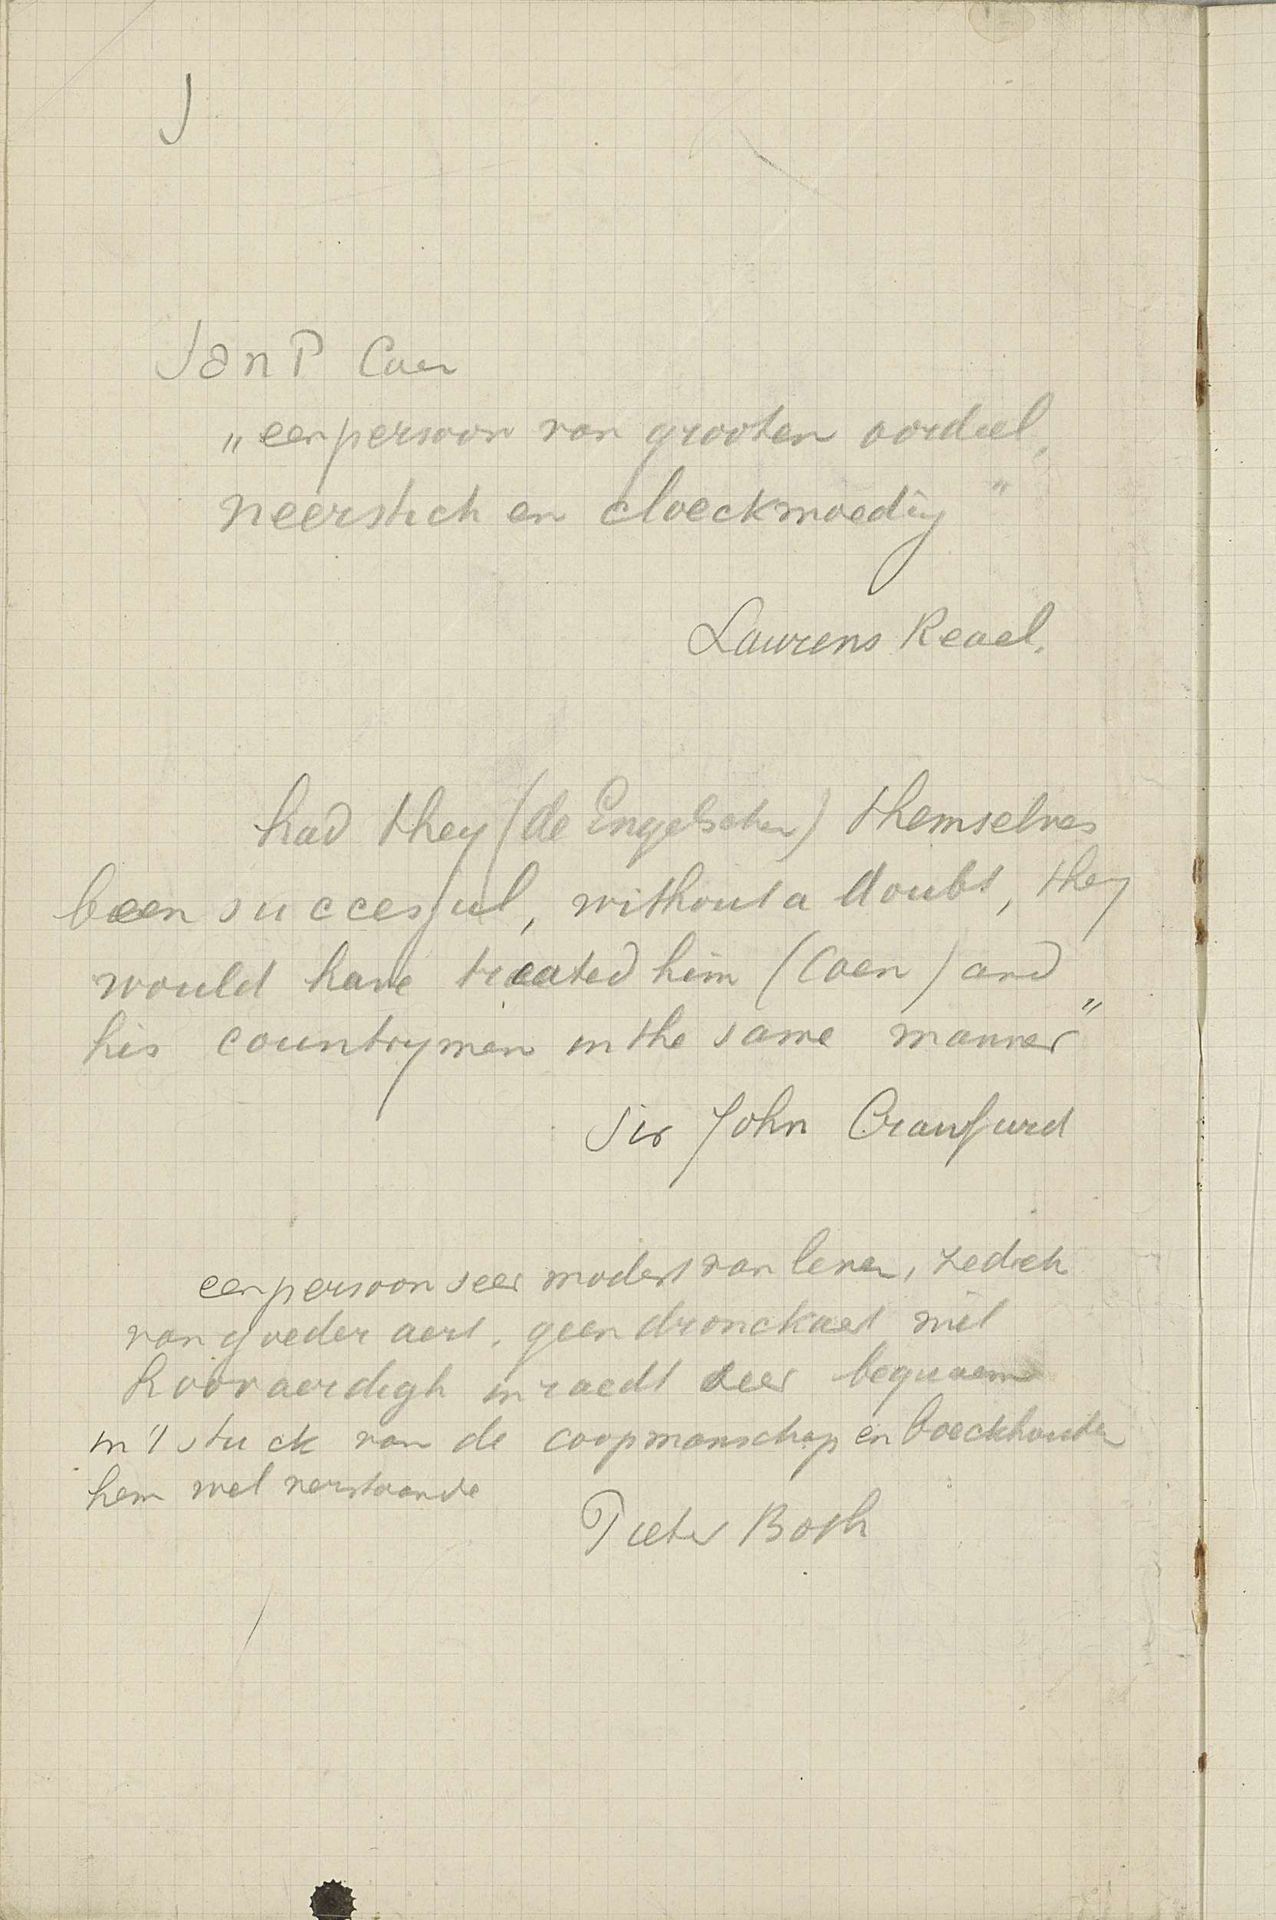 J
Jan P Coen
„een persoon van grooten oordeel,
neerstich en cloeckmoedig"
Laurens Reael.
had they (de Engelschen) themselves
been succesful, without a doubt, they
would have treated him (Coen) and
his countrymen in the same manner"
Sir John Craufurd
een persoon seer modest van leven, zedich
van goeder aert, geen dronckaert niet
hoovaerdigh in raedt seer bequaem
in 't stuck van de coopmanschap en boeckhouden
hem wel verstaande
Pieter Both